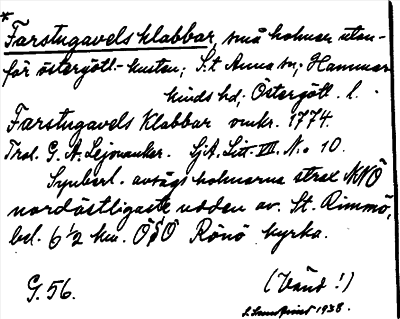 *
Farstugavelsklabbar, små holmar utan-
för östergötl.-kusten; S:t Anna sn; Hammar-
kinds hd; Östergötl. l.
Farstugavels Klabbar omkr. 1774.
Thol. G. A. Lejonanker. SjA. Litt. VII. N:o 10.
Synberl. avsågs holmarna strax NNÖ
nordöstligaste udden av St. Rimmö,
bel. 6 1/2 km. ÖSÖ Rönö kyrka.
G. 56. (Vänd !)
1938.